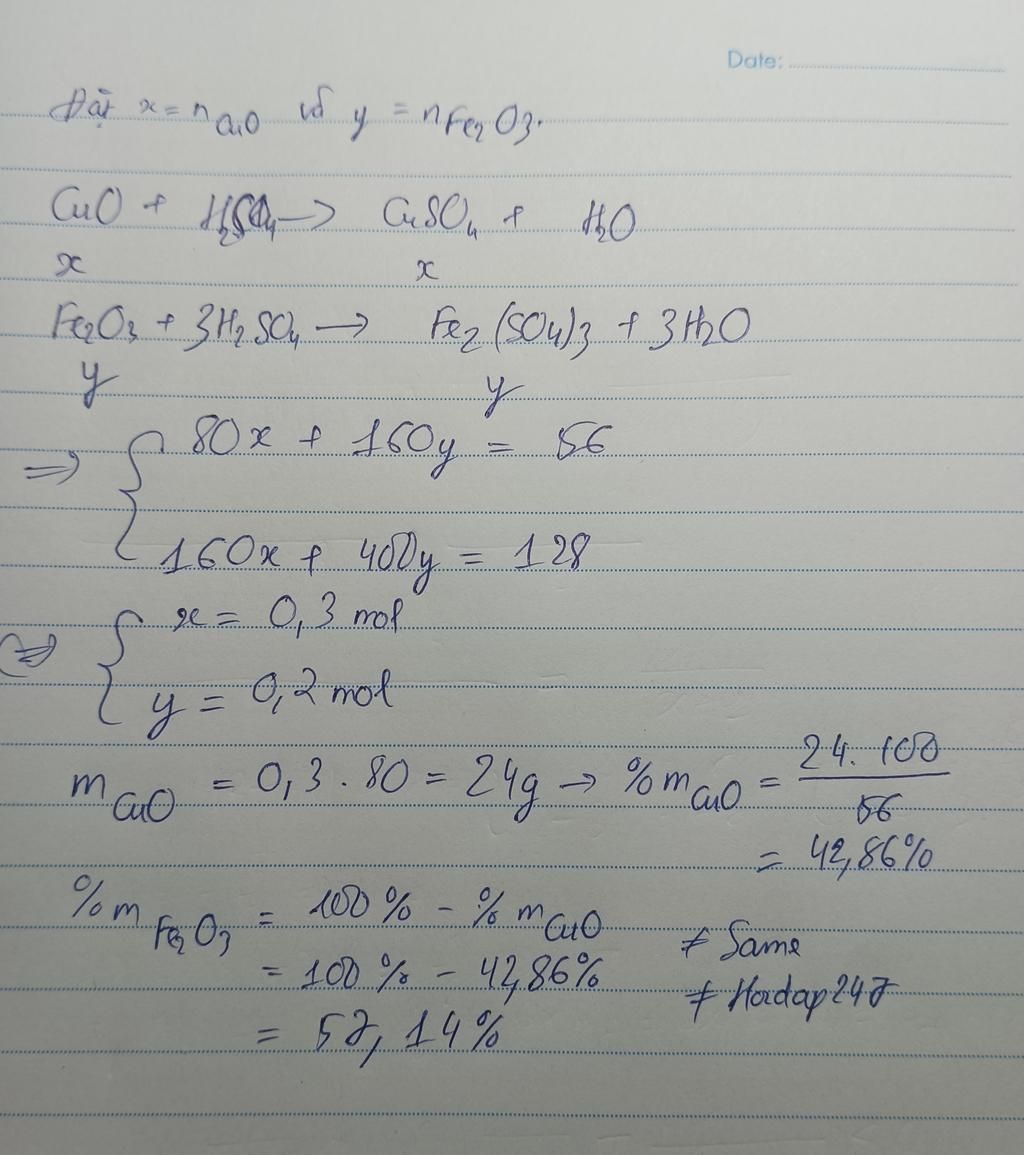 Date:
Đặt x = nCuO và y = nFe2O3.
CuO + H2SO4 → CuSO4 + H2O
x x
Fe2O3 + 3H2SO4 → Fe2(SO4)3 + 3H2O
y y
⇒ { 80x + 160y = 56
160x + 400y = 128
⇔ { x = 0,3 mol
y = 0,2 mol
mCuO = 0,3 . 80 = 24g → %mCuO = 24. 100 / 56
= 42,86%
%mFe2O3 = 100% - %mCuO
= 100% - 42,86%
= 57,14%
≠ Same
≠ Hoidap247